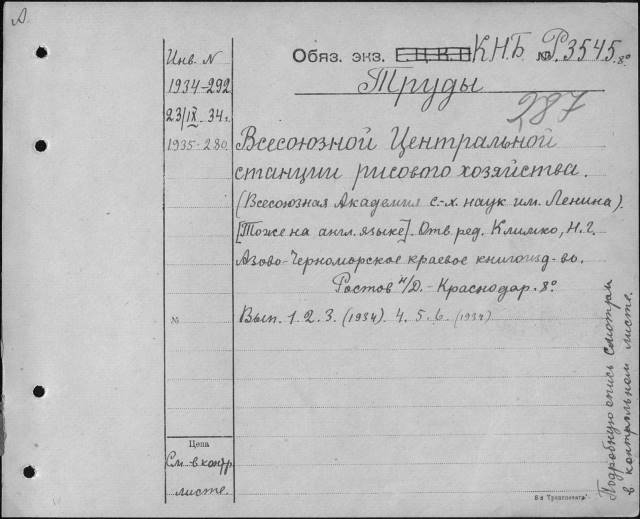 А.
Инв. N
1934-292
23/IX. 34 г.
1935-280.
Обяз. экз. Г.Ц.К.П К.Н.Б. № Р3545. 8°
Труды
287
Всесоюзной Центральной
станции рисового хозяйства.
(Всесоюзная Академия с.-х. наук им. Ленина).
[Тоже на англ. языке]. Отв. ред. Климко, Н.Г.
Азово-Черноморское краевое книгоизд-во.
Ростов н/Д. - Краснодар. 8°
№
Вып. 1. 2. 3. (1934). 4. 5. 6. (1934)
Цена
См. в контр.
листе.
Подробную опись смотри
в контрольном листе.